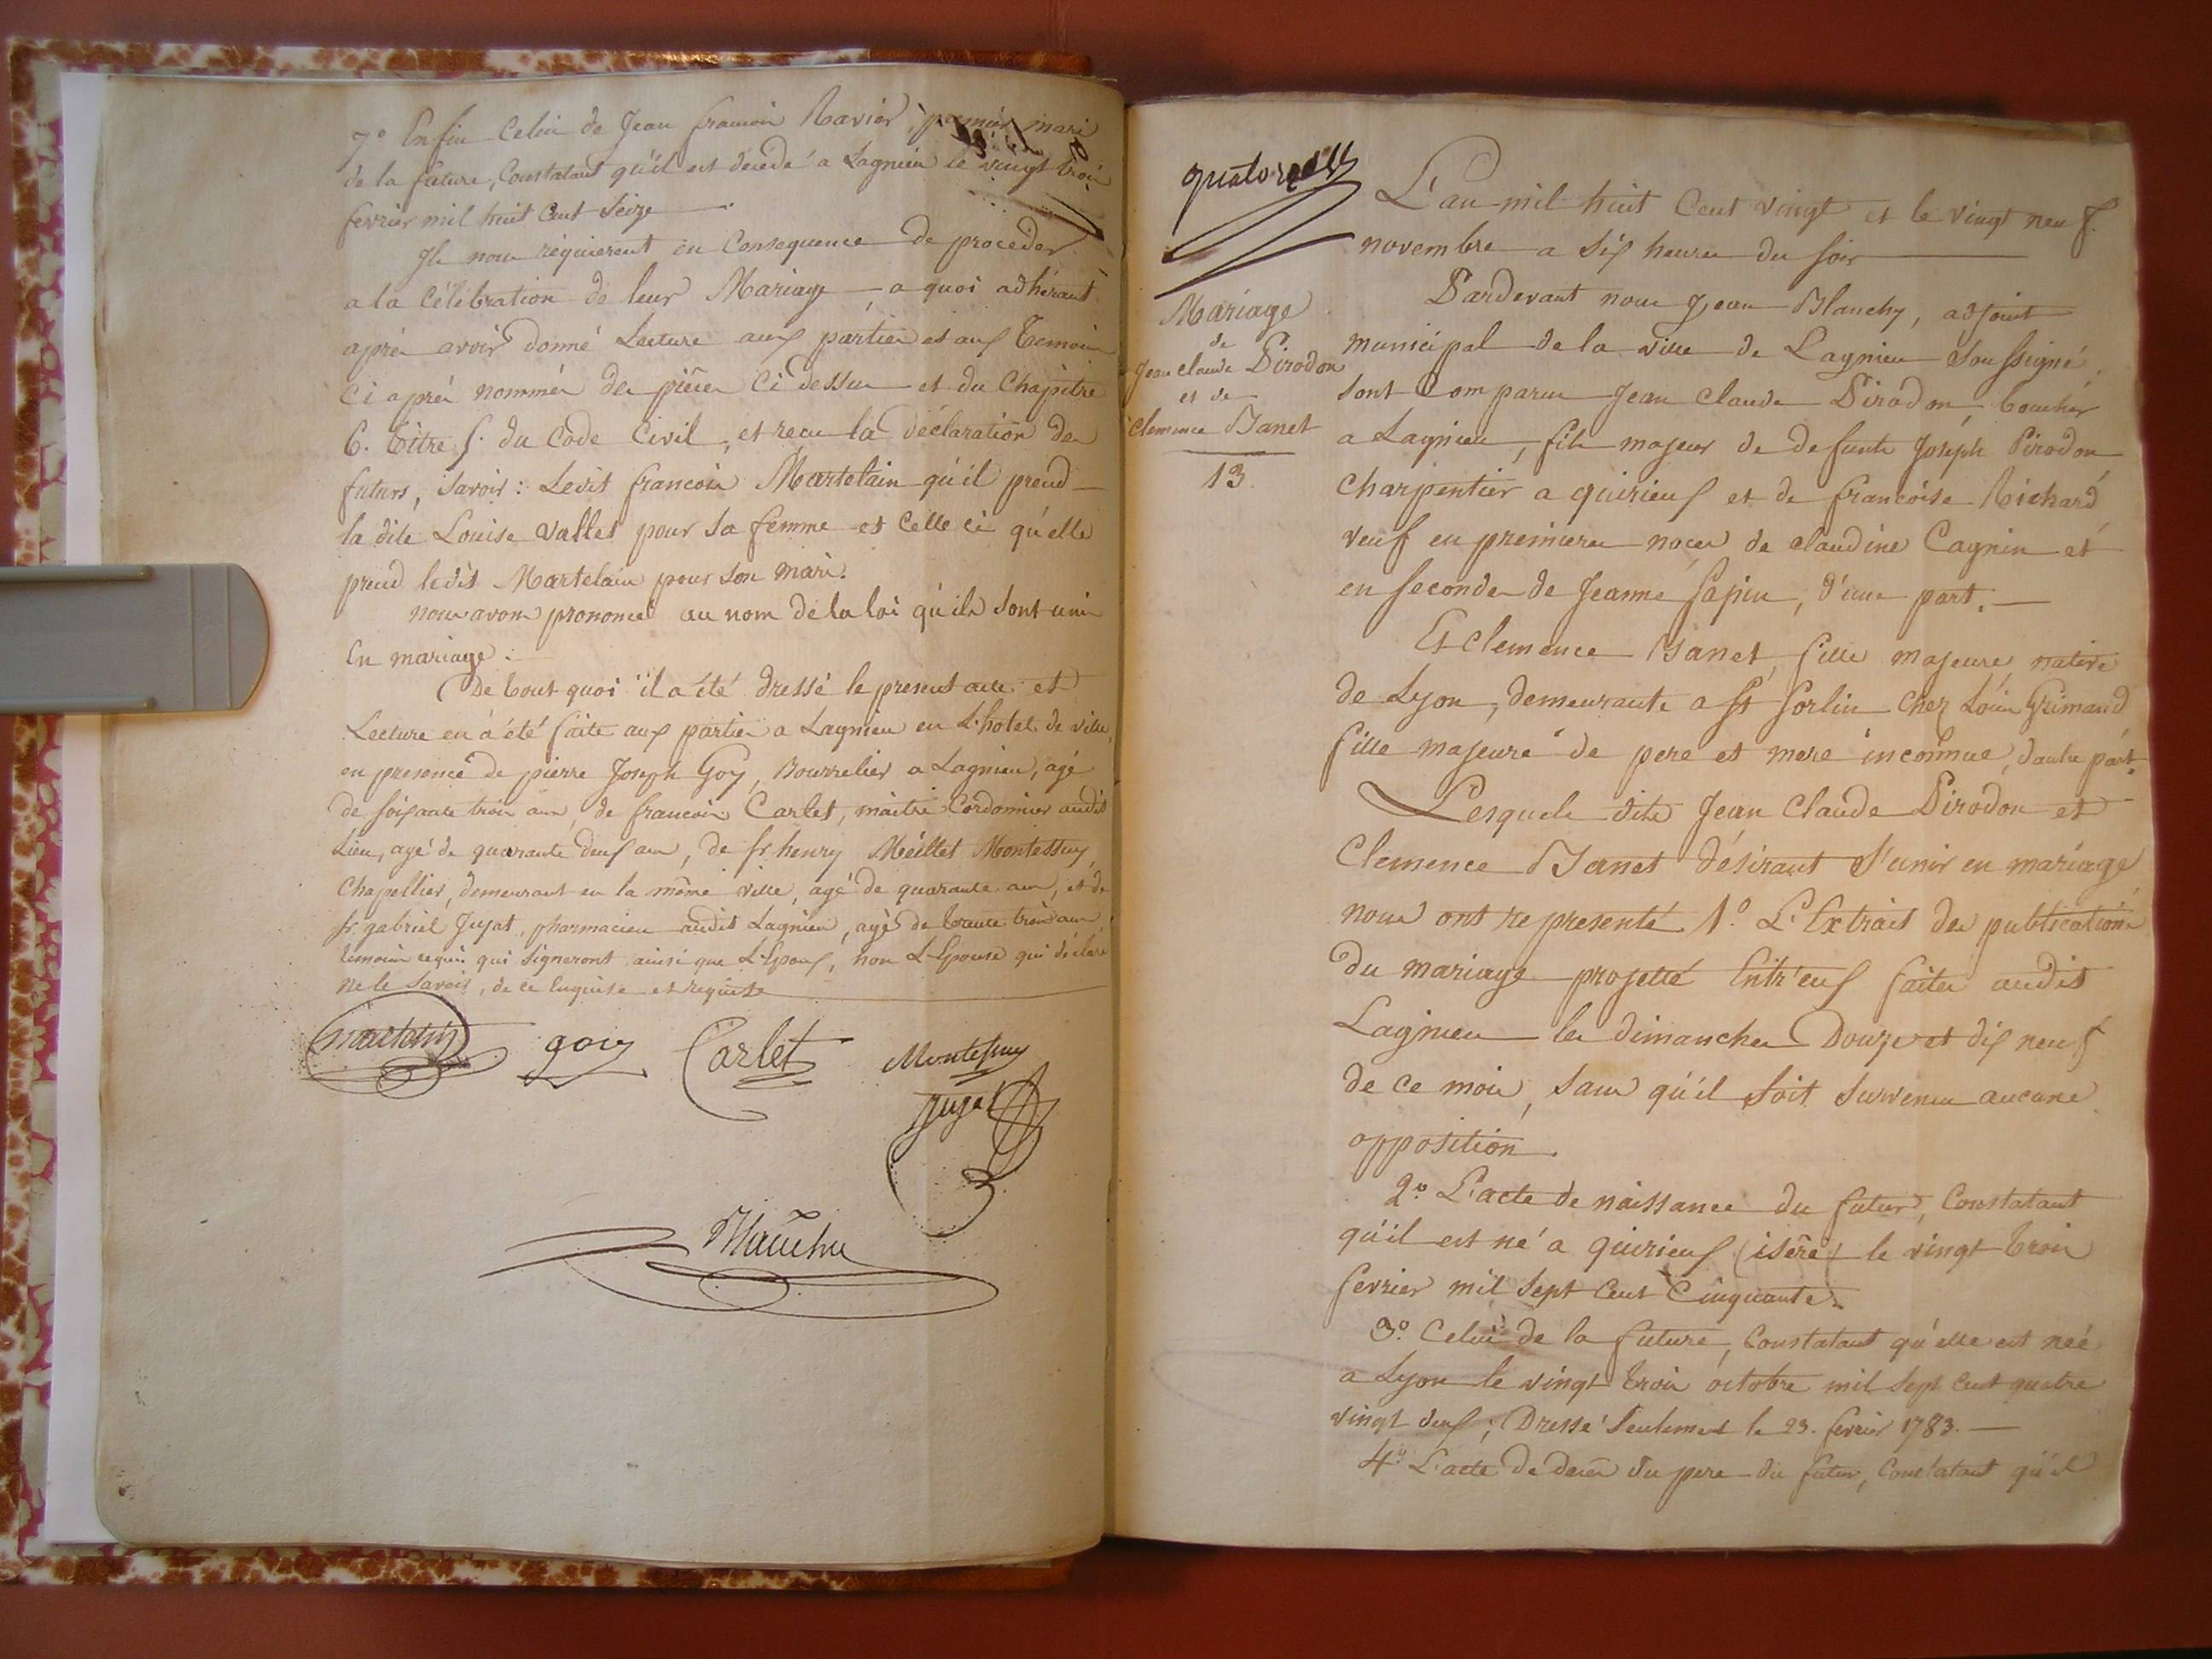 7º Enfin Celui de Jean francois Ravier, premier mari
de la future, Constatant qu'il est décédé a Lagnieu le vingt trois
fevrier mil huit Cent Seize
Ils nous réquierent en Consequence de proceder
a la Célébration de leur Mariage, a quoi adhérant
après avoir donné Lecture aux parties et aux Temoins
Ci après nommés des pièces Ci dessus et du Chapitre
6. titre 5. du Code Civil, et recu la déclaration des
futurs, Savoir: Ledit francois Martelain qu'il prend
la dite Louise Vallet pour Sa femme et Celle ci qu'elle
prend ledit Martelain pour Son mari.
nous avons prononcé au nom de la loi qu'ils Sont unis
En mariage.
De tout quoi il a été dressé le present acte et
Lecture en a été faite aux parties a Lagnieu en L'hotel de ville,
en presence de pierre Joseph Goy, Bourrelier a Lagnieu, agé
de soixante trois ans, de francois Carlet, maitre Cordonnier audit
Lieu, agé de quarante deux ans, de sr. henry Méillet Montessuy,
Chapellier, demeurant en la même ville, agé de quarante ans, et de
sr. gabriel Jujat, pharmacien audit Lagnieu, agé de trente trois ans
temoins requis qui Signeront ainsi que L'Epoux, non L'Epouse qui déclare
ne le Savoir, de ce Enquise et requise
martelin goiy Carlet Montessuy
Jujat
Blanchy
quatorze
Mariage
de
Jean claude Pirodon
et de
Clemence Banet
13.
L'an mil huit Cent vingt et le vingt neuf
novembre a Six heures du soir
Pardevant nous Jean Blanchy, adjoint
municipal de la ville de Lagnieu Soussigné,
Sont Comparus Jean Claude Pirodon, boucher
a Lagnieu, fils majeur de defunts Joseph Pirodon
Charpentier a quirieux et de francoise Richard
veuf en premieres noces de claudine Cagnin et
en secondes de Jeanne Sapin, d'une part.
Et Clemence Banet, fille majeure, native
de Lyon, demeurante a St. Sorlin chez Louis Grimand
fille majeure de pere et mere inconnue, dautre part.
Lesquels dits Jean Claude Pirodon et
Clemence Banet désirant S'unir en mariage
nous ont representé 1º. L'Extrait des publications
du mariage projetté Entr'eux faites audit
Lagnieu les dimanches Douze et dix neuf
de Ce mois, Sans qu'il Soit Survenu aucune
opposition.
2º. L'acte de naissance du futur, Constatant
qu'il est né a quirieux (isère) le vingt trois
fevrier mil Sept Cent Cinquante.
3º. Celui de la future, Constatant qu'elle est née
a Lyon le vingt trois octobre mil Sept Cent quatre
vingt deux; Dressé Seulement le 23. fevrier 1783.
4º L'acte de deces du pere du futur, Constatant qu'il